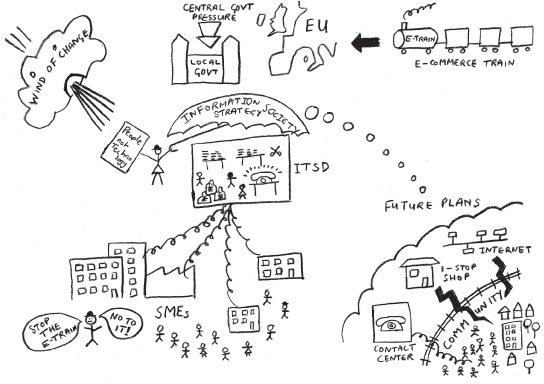 CENTRAL GOVT
PRESSURE
EU
LOCAL
GOVT
E-TRAIN
E-COMMERCE TRAIN
WIND OF CHANGE
INFORMATION SOCIETY
STRATEGY
People
not
Techno
logy
ITSD
FUTURE PLANS
INTERNET
1-STOP
SHOP
COMM
UNITY
CONTACT
CENTER
SMEs
STOP
THE
E-TRAIN
NO TO
IT!